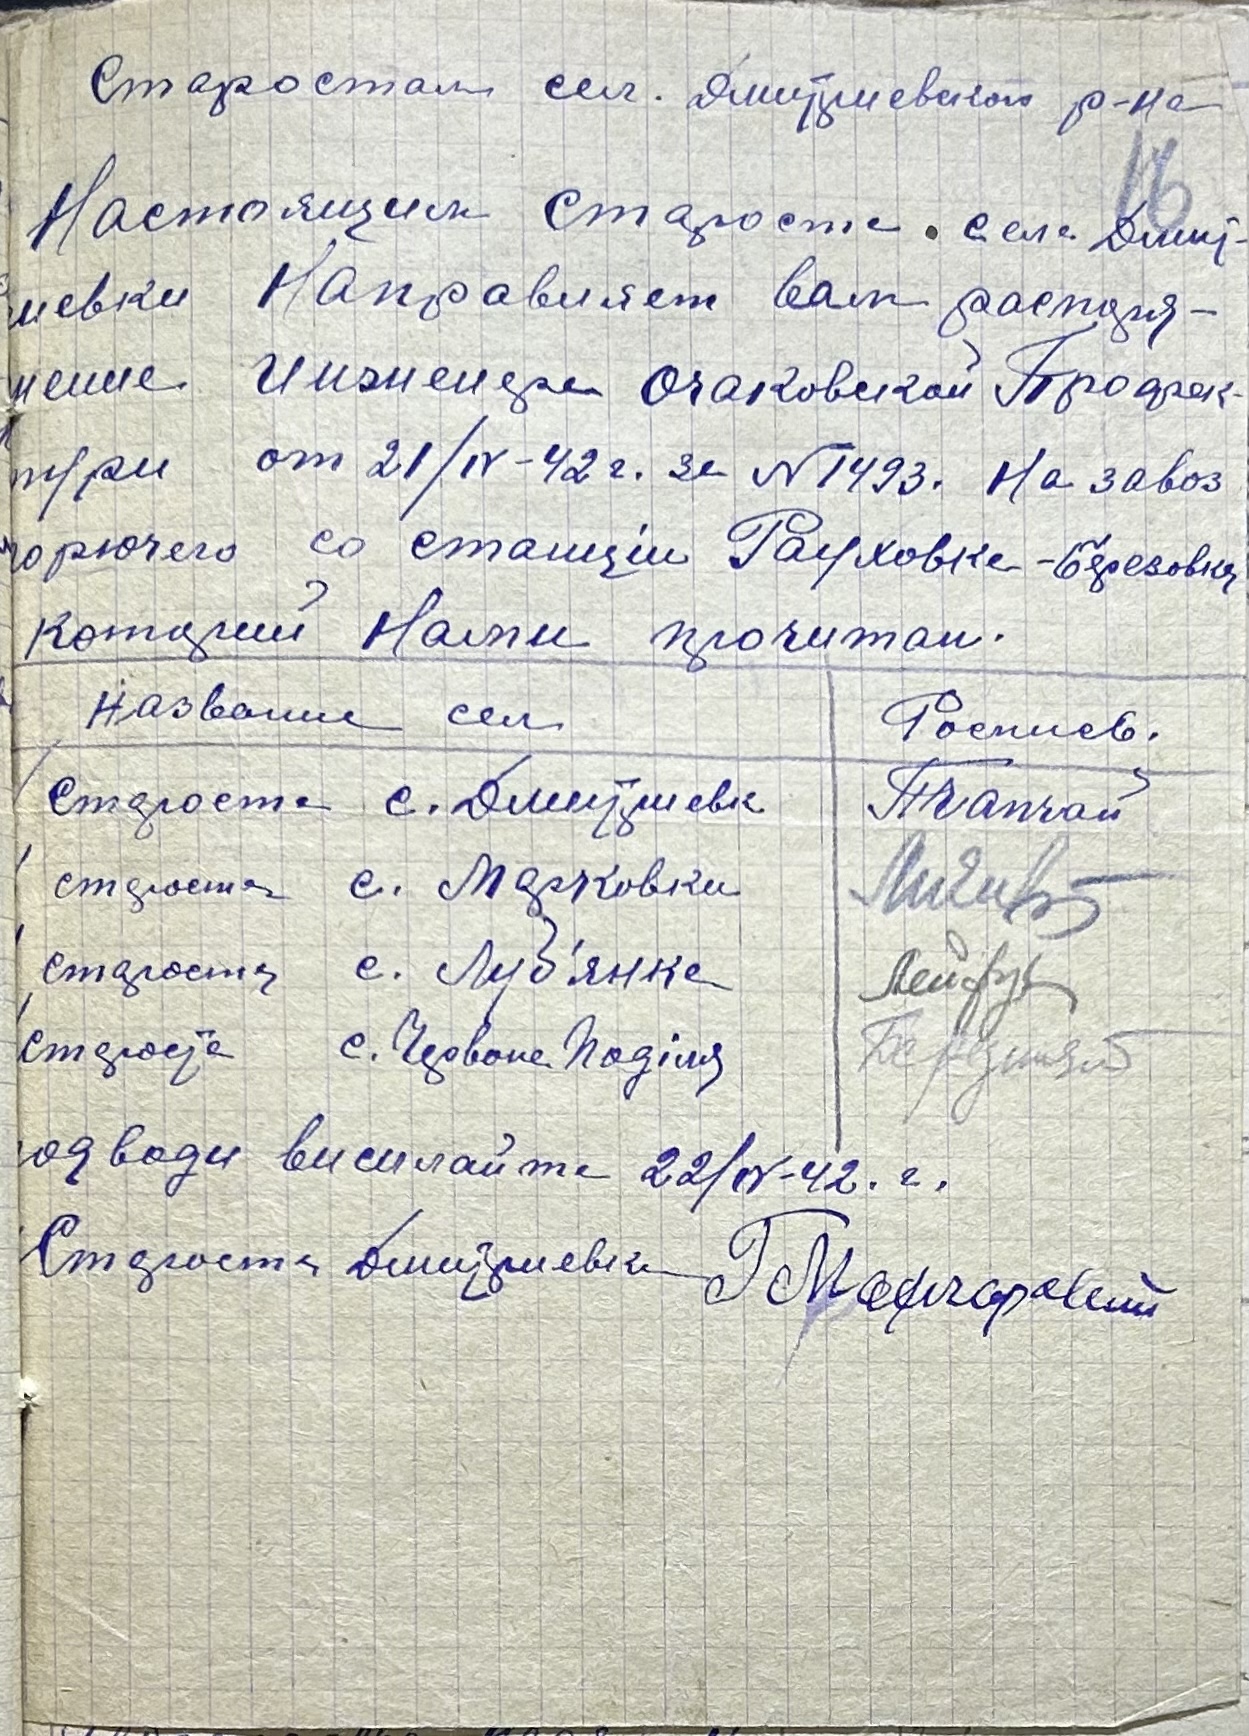 Старостам сел. Дмитриевского р-на
16
Настоящим староста села Дмит-
риевки Направляет вам распоря-
жение Инженера Очаковской Профек-
тури от 21/IV-42 г. за N 1493. На завоз
горючего со станціи Рауховка-Березовка
которий Нами прочитан.
Название сел Роспись.
Староста с. Дмитриевк
староста с. Марковки
староста с. Луб'янка
староста с. Червоне Поділля
Подводи висилайте 22/IV-42. г.
Староста Дмитриевки